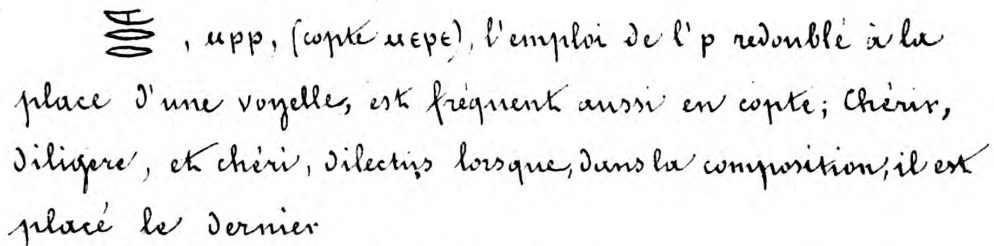 , ⲙⲣⲣ, (copte ⲙⲉⲣⲉ), l'emploi de l'ⲣ redoublé à la
place d'une voyelle, est fréquent aussi en copte; Chérir,
diligere, et chéri, dilectus lorsque, dans la composition, il est
placé le dernier